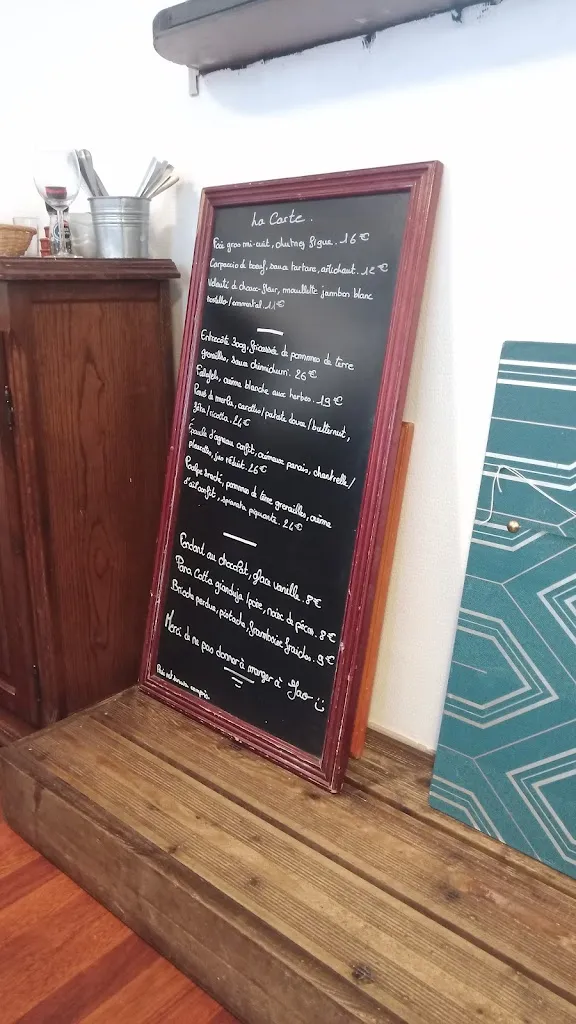 La Carte.
Foie gras mi-cuit, chutney figue. 16€
Carpaccio de boeuf, sauce tartare, artichaut. 12€
Velouté de choux-fleur, mouillette jambon blanc
/emmental. 11€
Entrecôte 300g, fricassée de pommes de terre
grenailles, sauce chimichurri. 26€
Falafels, crème blanche aux herbes. 19€
Pavé de merlu, carottes/patate douce/butternut,
fêta/ricotta. 24€
Épaule d'agneau confit, crémeux panais, chantrelle/
pleurottes, jus réduit. 26€
Poulpe snacké, pommes de terre grenailles, crème
d'ail confit, sriracha piquante. 24€
Fondant au chocolat, glace vanille. 8€
Pana Cotta gianduja/poire, noix de pécan. 8€
Brioche perdue, pistache, framboises fraiches. 9€
Merci de ne pas donner à manger à
Prix net service compris.